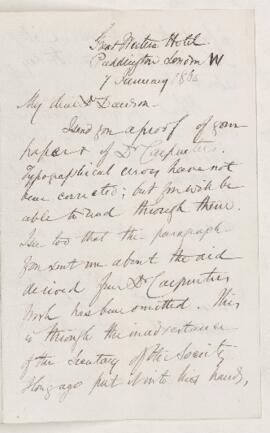 Great Western Hotel
Paddington London W
7 January 1865
My dear Dr Dawson.
I send you a proof of your
paper & of Dr Carpenter's.
Typographical errors have not
been corrected; but you will be
able to read through them.
See too that the paragraph
you sent me about the aid
derived from Dr Carpenter's
work has been omitted. This
is through the inadvertence
of the Secretary of the Society
I long ago put it into his hands,